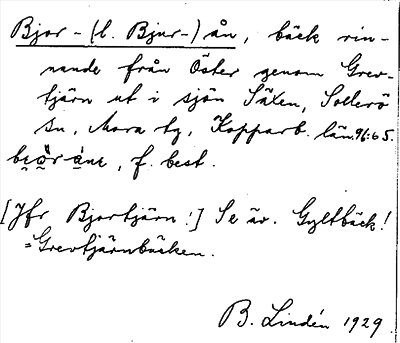 Bjor- (l. Bjur-) ån, bäck rin-
nande från Öster genom Grev-
tjärn ut i sjön Säxen, Sollerö
sn, Mora tg, Kopparb. län. 96:65.
f. best.
[Jfr Bjortjärn!] Se äv. Gyltbäck!
=Grevtjärnbäcken.
B. Lindén 1929